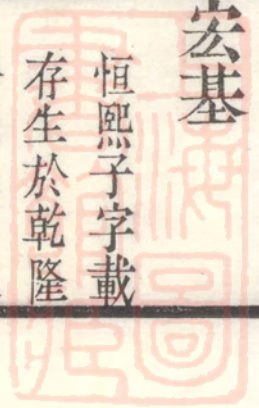 宏基
恒熙子字載
存生於乾隆